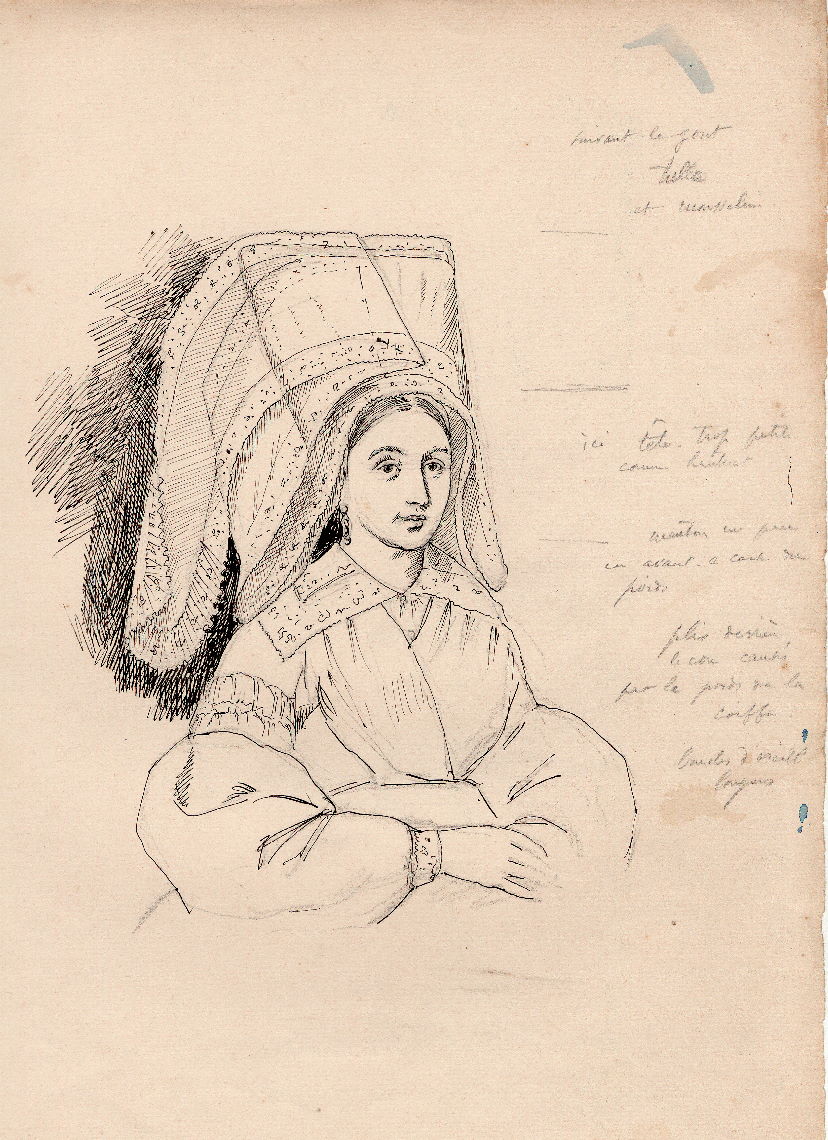 suivant le gout
tulle
et mousselin
ici tête trop petit
comm hauteur
menton un peu
en avant a caus du
poids
plis derrièr
le cou causé
par le poids de la
coiffe
boucles d'oreill
longues